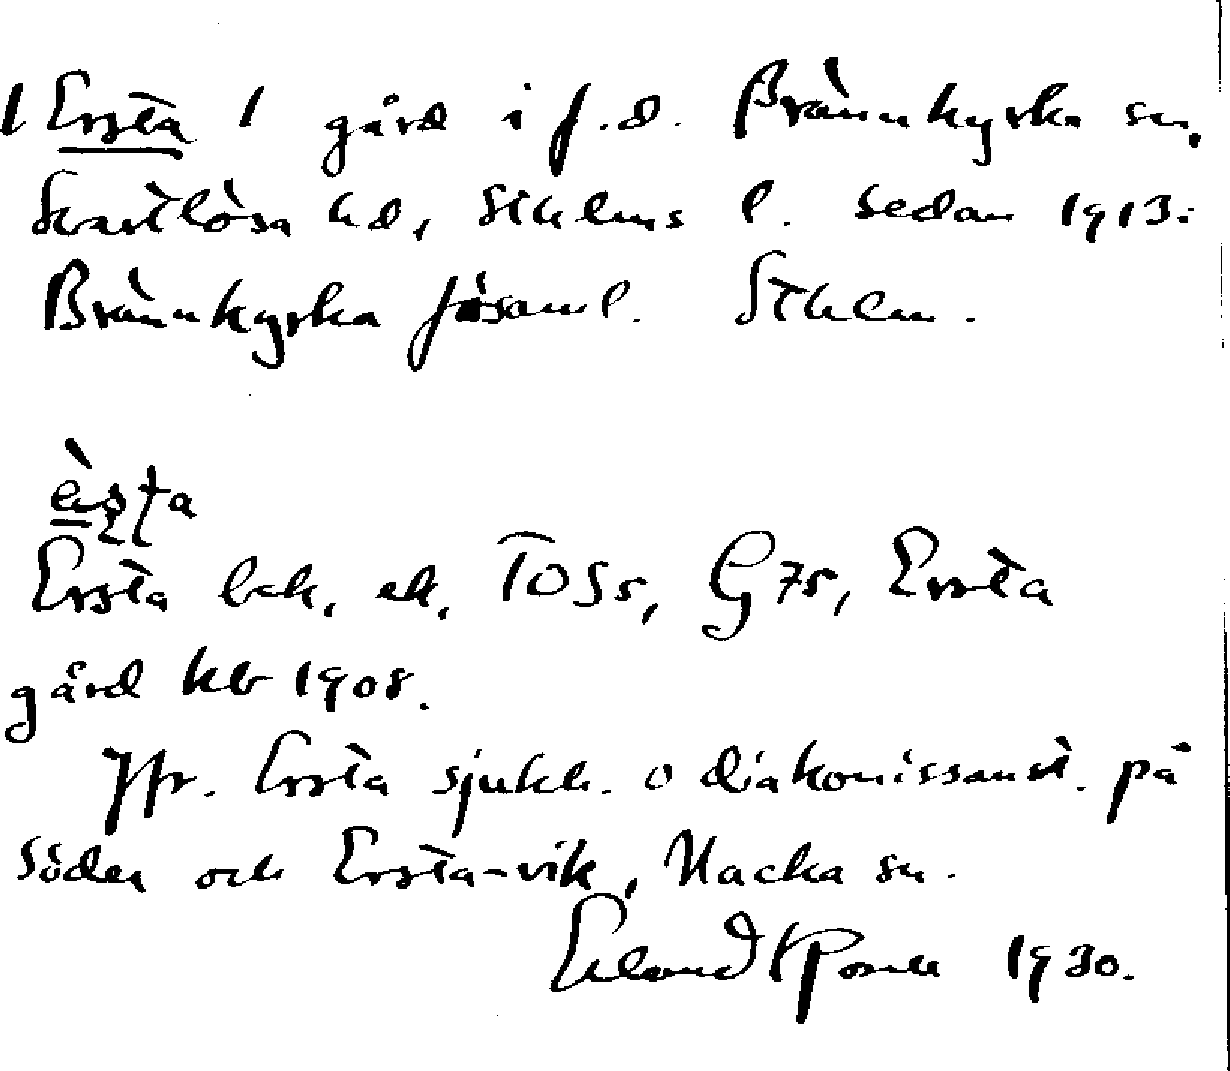 / Ersta / gård i f.d. Brännkyrka sn,
Svartlösa hd, Sthlms l. Sedan 1913:
Brännkyrka församl. Sthlm.
Ersta bek. ek, TOS5, G75, Ersta
gård kb 1908.
Jfr. Ersta sjukh. o diakonissanst. på
Söder och Ersta-vik, Nacka sn.
Erland 1930.